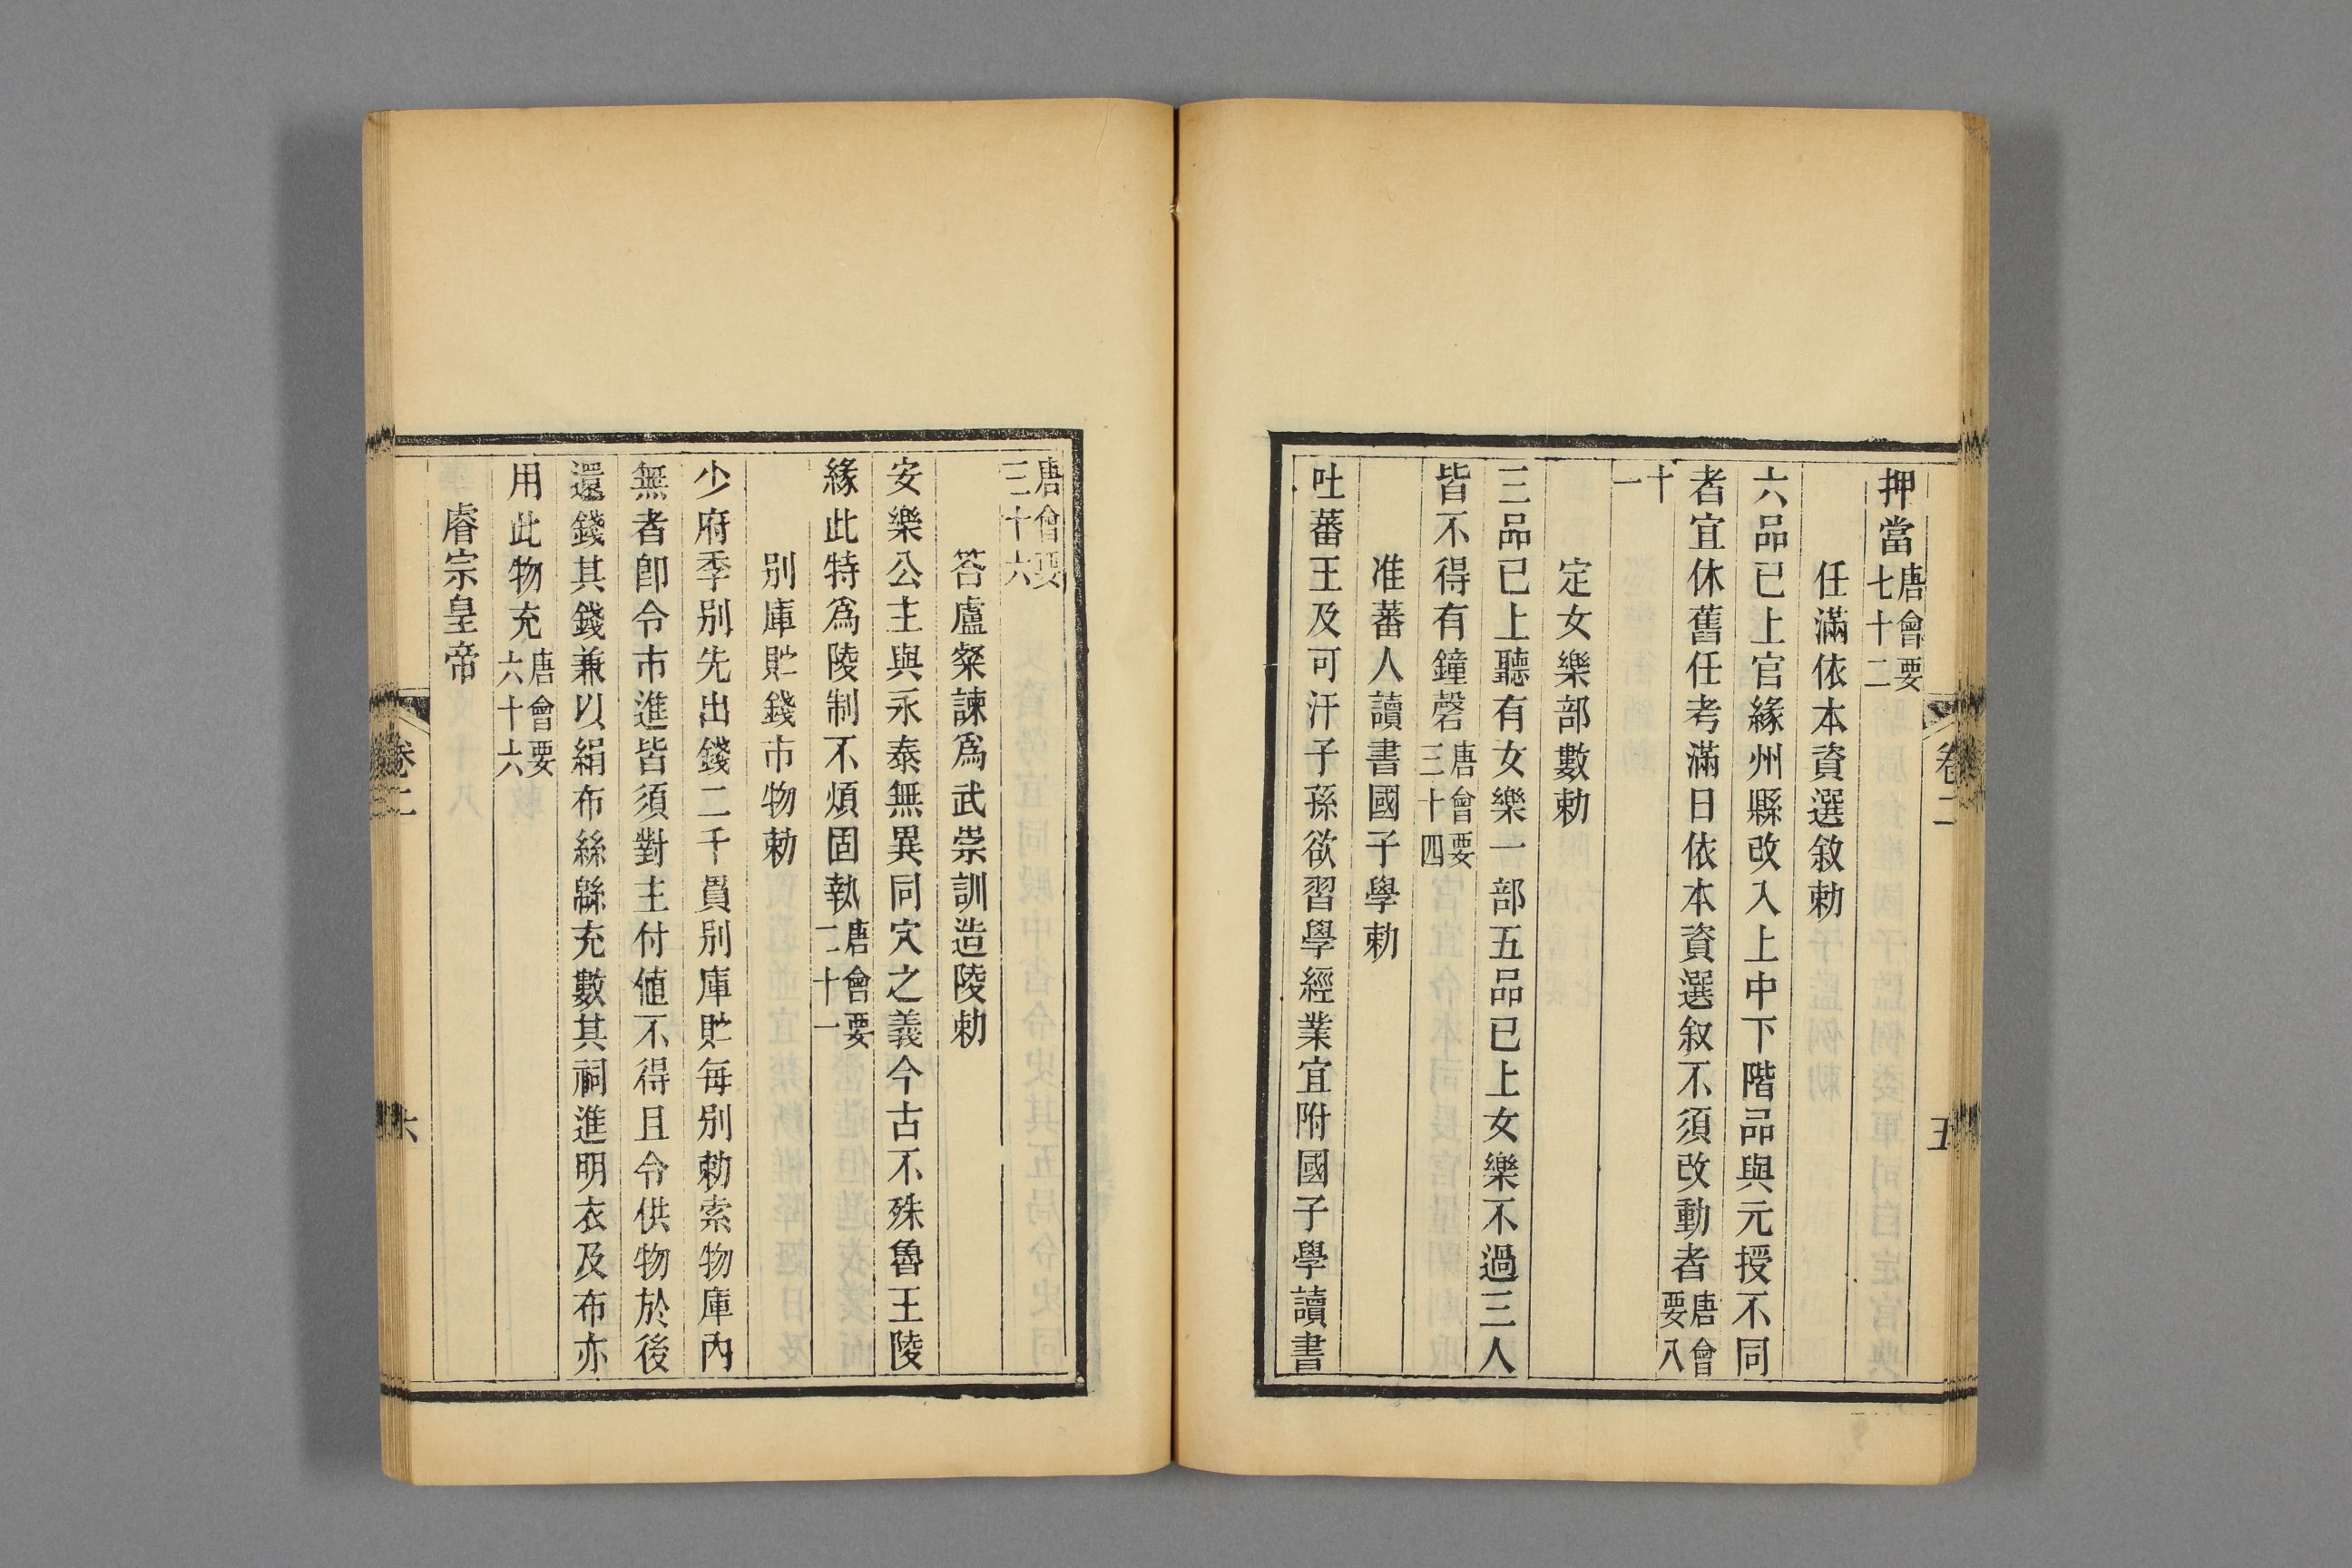 押當唐會要七十二
任滿依本資選敘勅
六品已上官緣州縣改入上中下階品與元授不同
者宜休舊任考滿日依本資選叙不須改動者唐會要八
十一
定女樂部數勅
三品已上聽有女樂一部五品已上女樂不過三人
皆不得有鐘磬唐會要三十四
准蕃人讀書國子學勅
吐蕃王及可汗子孫欲習學經業宜附國子學讀書
卷二
五
唐會要三十六
答盧粲諫爲武崇訓造陵勅
安樂公主與永泰無異同穴之義今古不殊魯王陵
緣此特爲陵制不煩固執唐會要二十一
別庫貯錢市物勅
少府季別先出錢二千貫別庫貯每別勅索物庫內
無者卽令市進皆須對主付値不得且令供物於後
還錢其錢兼以絹布絲緜充數其祠進明衣及布亦
用此物充唐會要六十六
睿宗皇帝
卷二
六